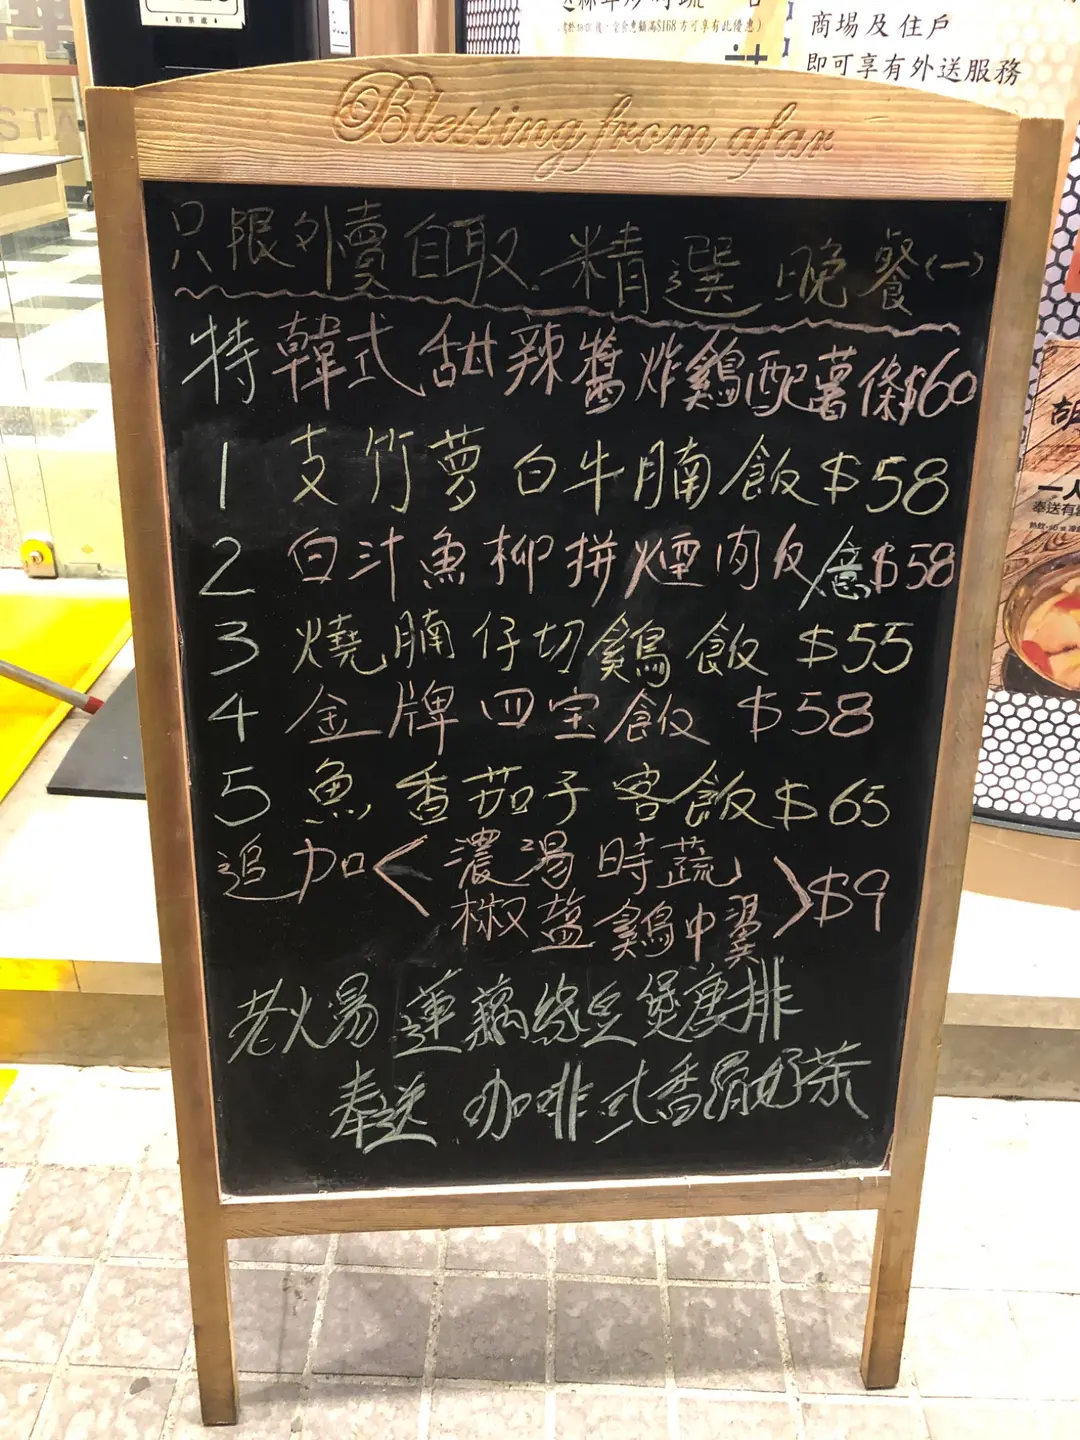 商場及住戶
即可享有外送服務
Blessing from afar
只限外賣自取 精選晚餐(一)
特 韓式甜辣醬炸鷄配薯條$60
1 支竹蘿白牛腩飯 $58
2 白汁魚柳拼煙肉反意$58
3 燒腩仔切鷄飯 $55
4 金牌四宝飯 $58
5 魚香茄子客飯 $65
追加<濃湯 時蔬
椒盐鷄中翼>$9
老火湯 蓮藕綠豆煲唐排
奉送 咖啡 式香滑奶茶